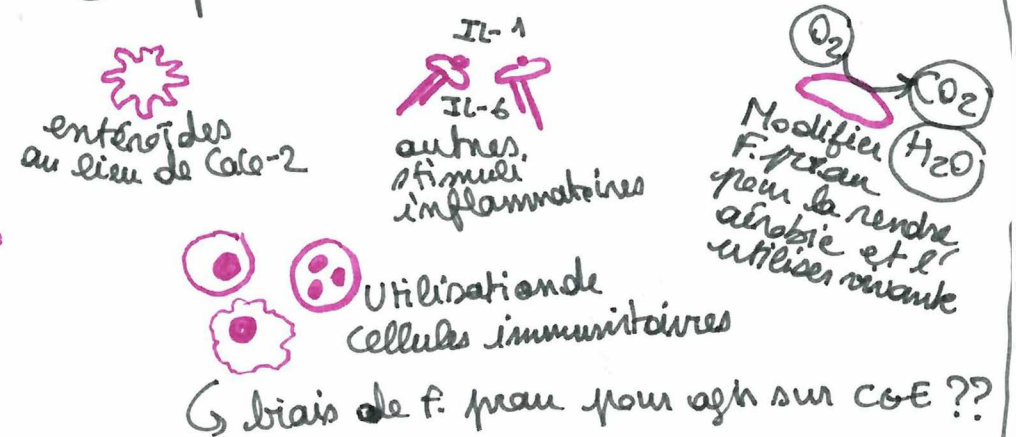 entéroïdes
au lieu de CaCo-2
IL-1
IL-6
autres
stimuli
inflammatoires
O2
CO2
H2O
Modifier
F. prau
pour la rendre
aérobie et l'
utiliser vivante
Utilisation de
cellules immunitaires
↳ biais de F. prau pour agir sur CGE ??